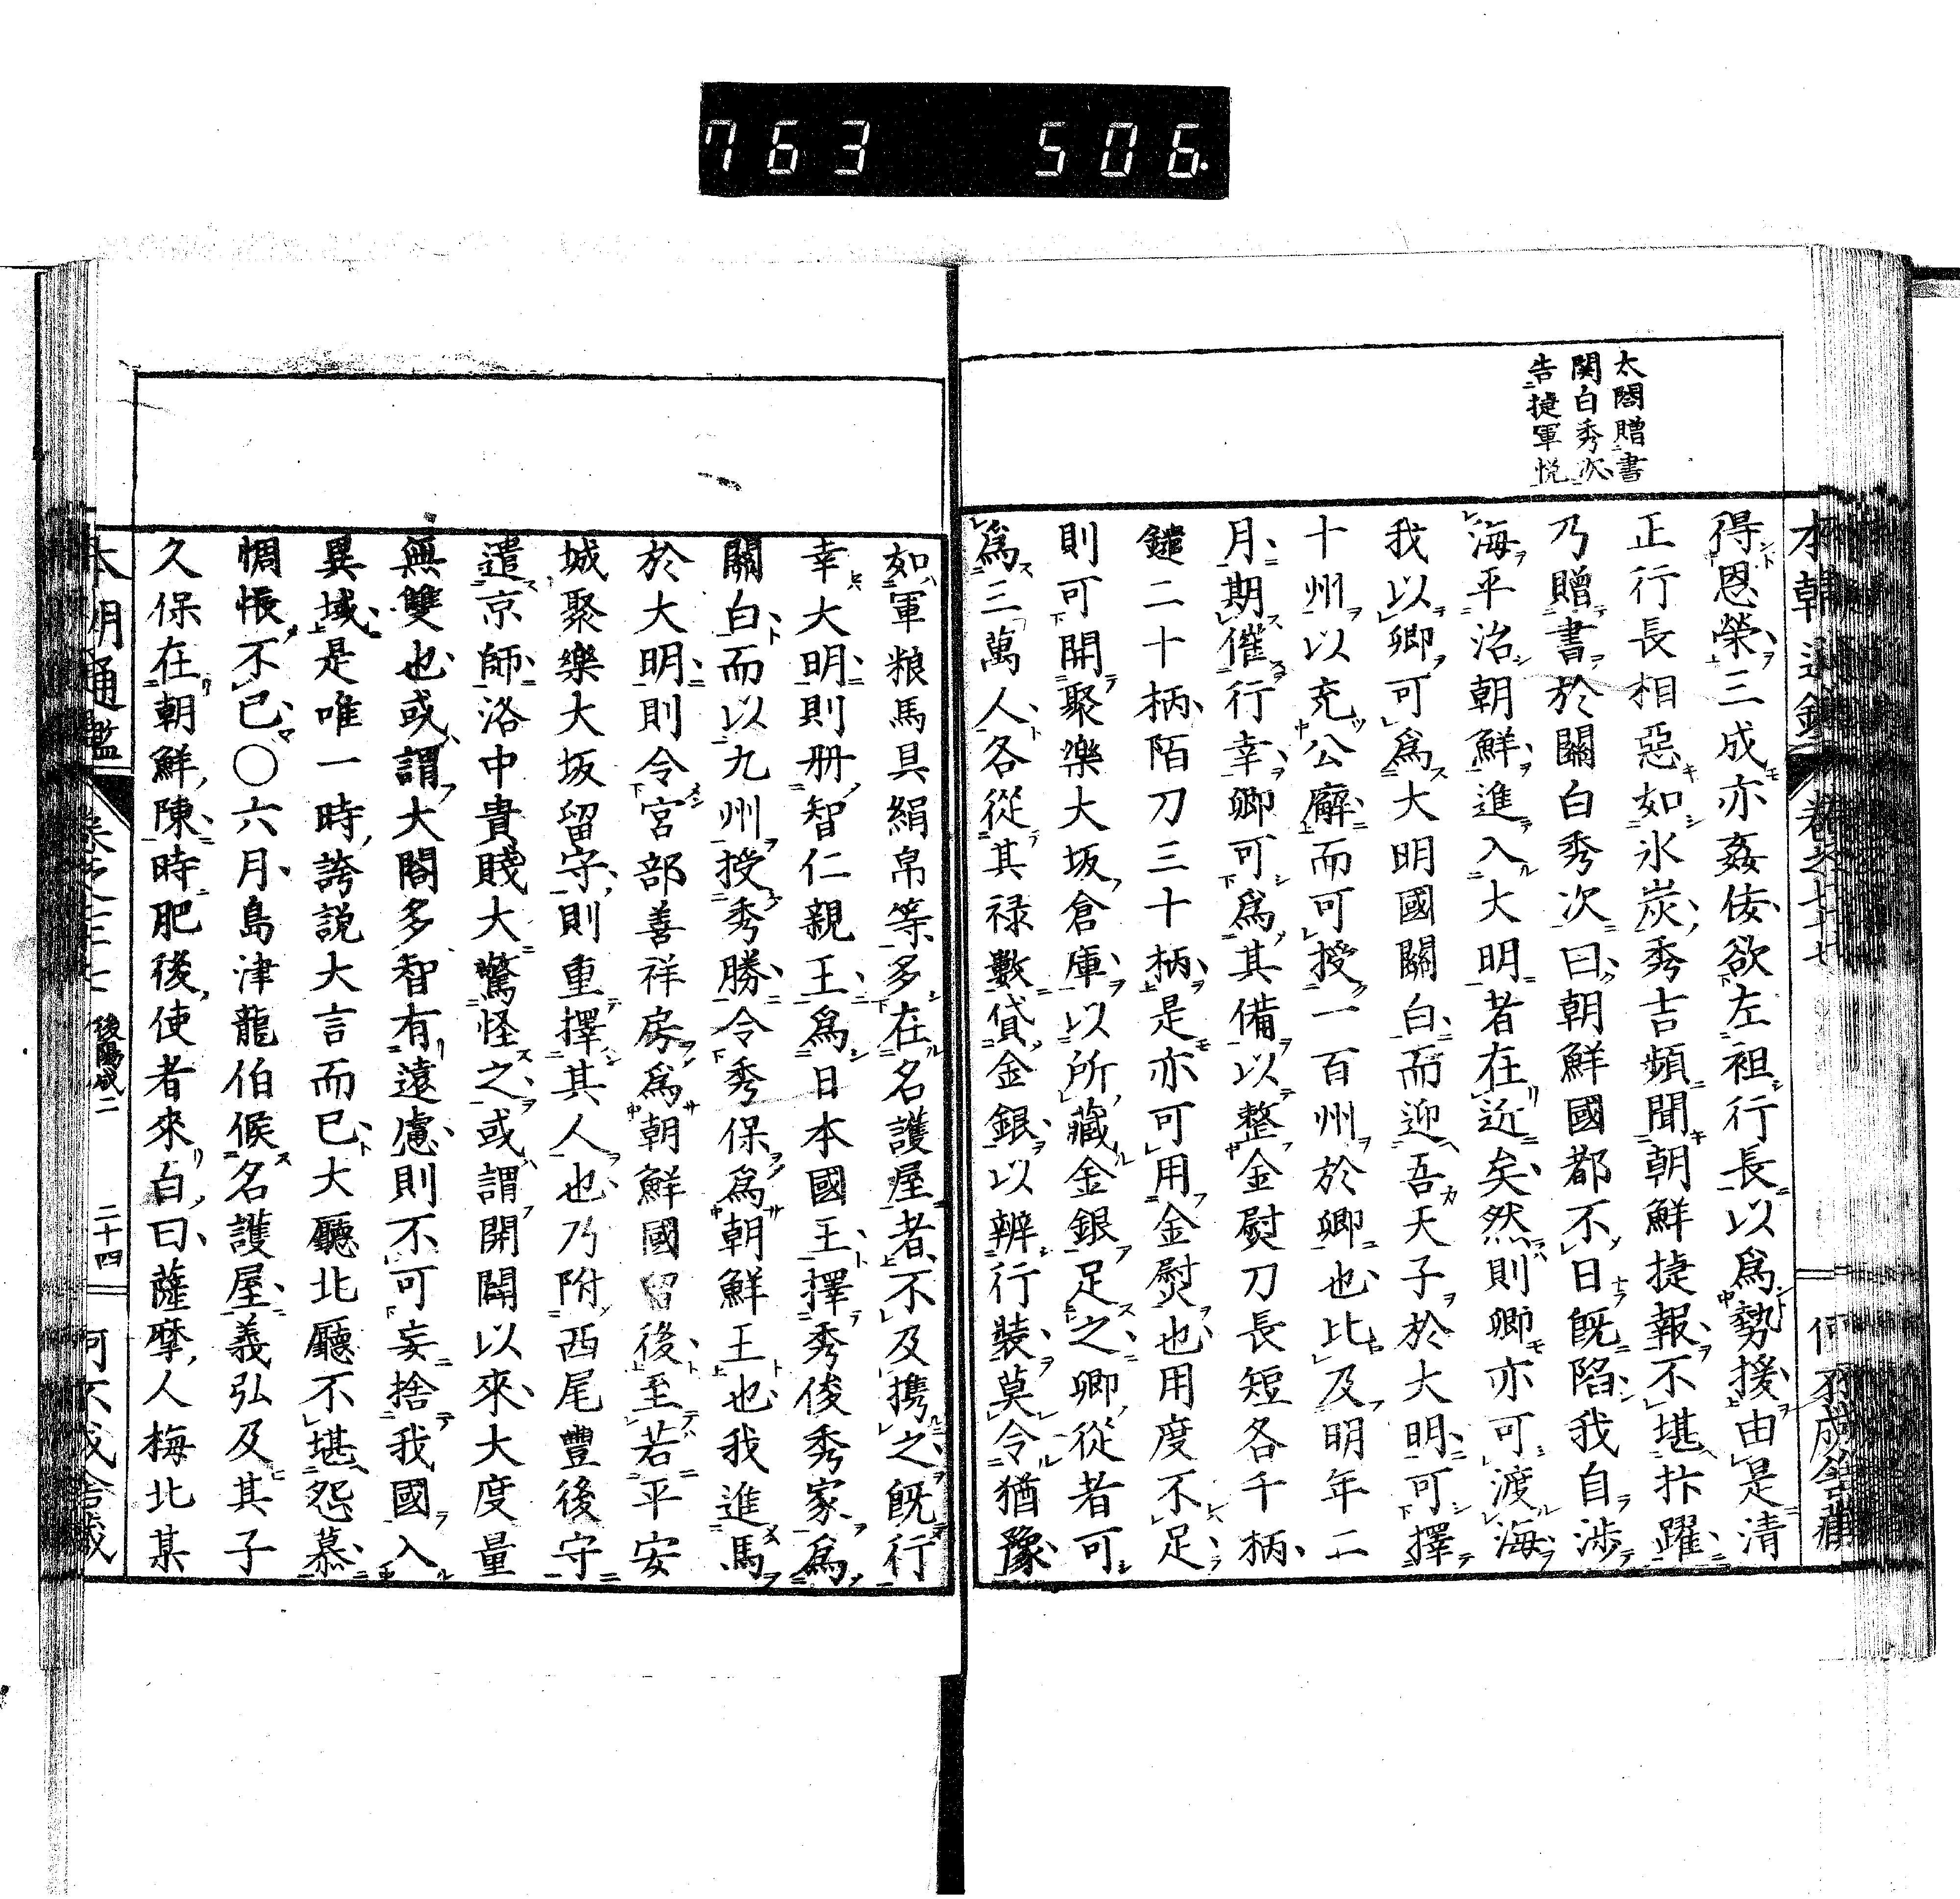 763 506.
太閤贈書
関白秀次
告捷軍悦
得恩榮三成亦姦佞欲左袒行長以爲勢援由是清
正行長相惡如氷炭秀吉頻聞朝鮮捷報不堪抃躍
乃贈書於關白秀次曰朝鮮國都不日既陷我自渉
海平治朝鮮進入大明者在近矣然則卿亦可渡海
我以卿可爲大明國關白而迎吾天子於大明可擇
十州以充公廨而可授一百州於卿也比及明年二
月期催行幸卿可爲其備以整金熨刀長短各千柄
鑓二十柄陌刀三十柄是亦可用金熨也用度不足
則可開聚樂大坂倉庫以所藏金銀足之卿從者可
爲三萬人各從其禄數貸金銀以辨行裝莫令猶豫
如軍粮馬具絹帛等多在名護屋者不及携之既行
幸大明則册智仁親王爲日本國王擇秀俊秀家爲
關白而以九州授秀勝令秀保爲朝鮮王也我進馬
於大明則令宮部善祥房爲朝鮮國留後至若平安
城聚樂大坂留守則重擇其人也乃附西尾豐後守
遣京師洛中貴賤大驚怪之或謂開闢以來大度量
無雙也或謂大閤多智有遠慮則不可妄捨我國入
異域是唯一時誇説大言而已大廳北廳不堪怨慕
惆悵不已○六月島津龍伯候名護屋義弘及其子
久保在朝鮮陳時肥後使者來白曰薩摩人梅北某
本朝通鑑 後陽成二 二十四